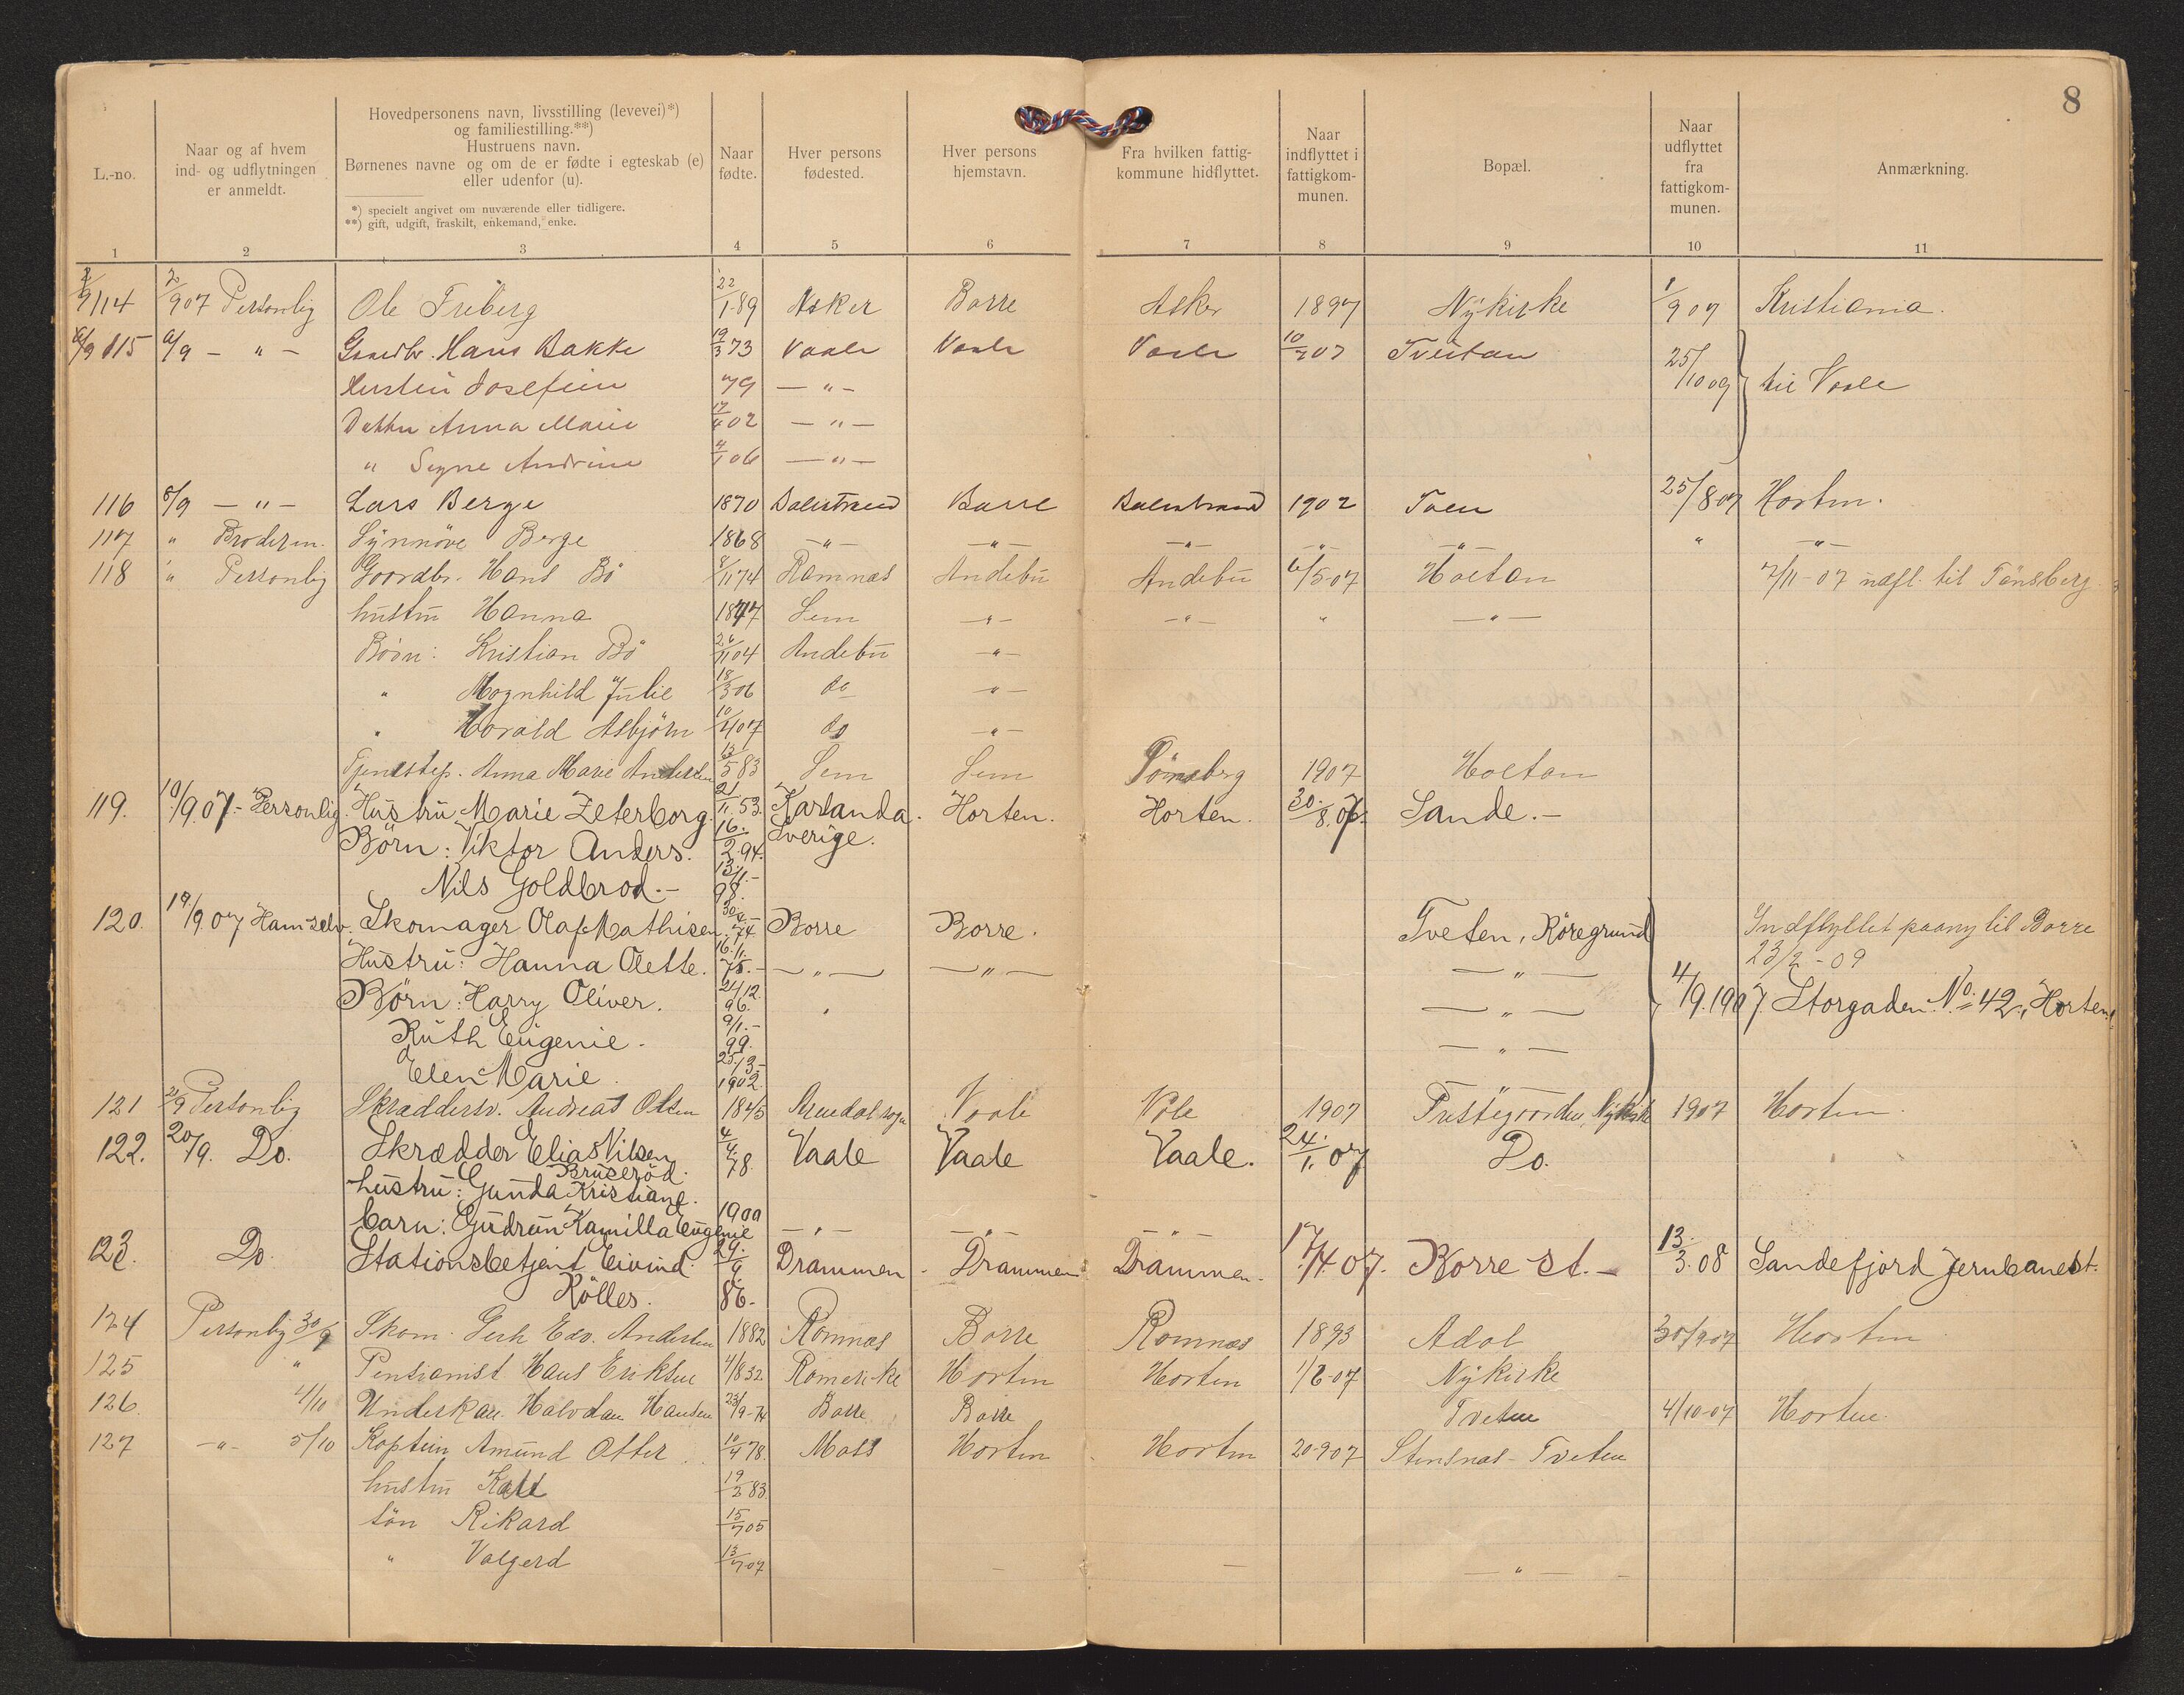 8
L.-no. Naar og af hvem ind- og udflytningen er anmeldt. Hovedpersonens navn, livsstilling (levevei)*) og familiestilling.**) Hustruens navn. Børnenes navne og om de er fødte i egteskab (e) eller udenfor (u). Naar fødte. Hver persons fødested. Hver persons hjemstavn. Fra hvilken fattigkommune hidflyttet. Naar indflyttet i fattigkommunen. Bopæl. Naar udflyttet fra fattigkommunen. Anmærkning.
*) specielt angivet om nuværende eller tidligere.
**) gift, udgift, fraskilt, enkemand, enke.
1 2 3 4 5 6 7 8 9 10 11
114 2/9 07 Personlig Ole Friberg 22/1 89 Asker Borre Asker 1897 Nykirke 1/9 07 Kristiania.
115 6/9 - " - Gaardbr. Hans Bakke 19/3 73 Vaale Vaale Vaale 10/7 07 Tveitan 25/10 09 til Vaale
Hustru Josefine 79 - " -
Datter Anna Marie 17/4 02 - " -
" Signe Andrine 4/1 06 - " -
116 8/9 - " - Lars Berge 1870 Balestrand Borre Balestrand 1902 Toen 25/8 07 Horten.
117 " Broderen. Synnöve Berge 1868 - " - - " - - " - - " - - " - " - " -
118 " Personlig Goordbr. Hans Bö 8/11 74 Ramnæs Andebu Andebu 6/5-07 Holtan 7/11-07 udfl. til Tönsberg
hustru Hanna 1877 Sem - " - - " - " - " -
Börn: Kristian Bö 26/11 04 Andebu - " -
" Magnhild Julie 18/3 06 do - " -
" Harald Asbjörn 10/4 07 do - " -
Tjenestep. Anna Marie Andersen 13/5 83 Sem Sem Tönsberg 1907 Holtan
119. 10/9.07.- Personlig. Hustru Marie Zeterborg. 21/11.53. Karlanda. Horten. Horten. 30./8.07. Sande.-
Börn: Viktor Anders. 16./2.94. Sverige.
Nils Goldbrod.- 13/1.- 98.
120. 19/9.07 Ham selv. Skomager Olaf Mathisen. 30/4.- 74. Borre Borre. Tveten, Röregrund Indflyttet paany til Borre 23/2-09
Hustru: Hanna Olette. 16./11. 75.- - " - - " - - " -
Börn: Harry Oliver. 21/12. 96. - " - 4/9.1907. Storgaden No 42., Horten.
Ruth Eugenie. 9/1.- 99. - " -
Elen Marie. 25/3- 1902.
121 21/9 Personlig Skræddersv. Andreas Olsen 1845 Vaale Vole 1907 Prestegoorden, Nykirke 1907 Horten.
122. 20/9. Do. Skrædder Elias Nilsen Bruseröd. 4/4. 78. Vaale Vaale Vaale. 24./1. 07 Do.
hustru: Gunda Kristiane.
barn: Gudrun Kamilla Eugenie 1900 - " - - " - - " -
123. Do. Stationsbetjent Eivind Kölles. 29./9 86.- Drammen Drammen Drammen. 17/4.07. Borre st.- 13./3.08 Sandefjord jernbanest.
124 Personlig 30/9 Skom. Gerh Edv. Andersen 1882 Romnæs Borre Romnæs 1893 Adal 30/9 07 Horten
125 " Pensionist Hans Eriksen 4/8 32 Romerike Horten Horten 1/8-07 Nykirke
126. 4/10 Underkan. Halvdan Hansen 23/9-74 Borre Borre Tveten 4/10-07 Horten.
127 - " - 5/10 Koptein Amund Otter 10/4 78. Moss Horten Horten 20-9 07 Stensnæs-Tveten
hustru 19/2 83.
sön Rikard 15/7 05
" Valgerd 13/7 07 - " -